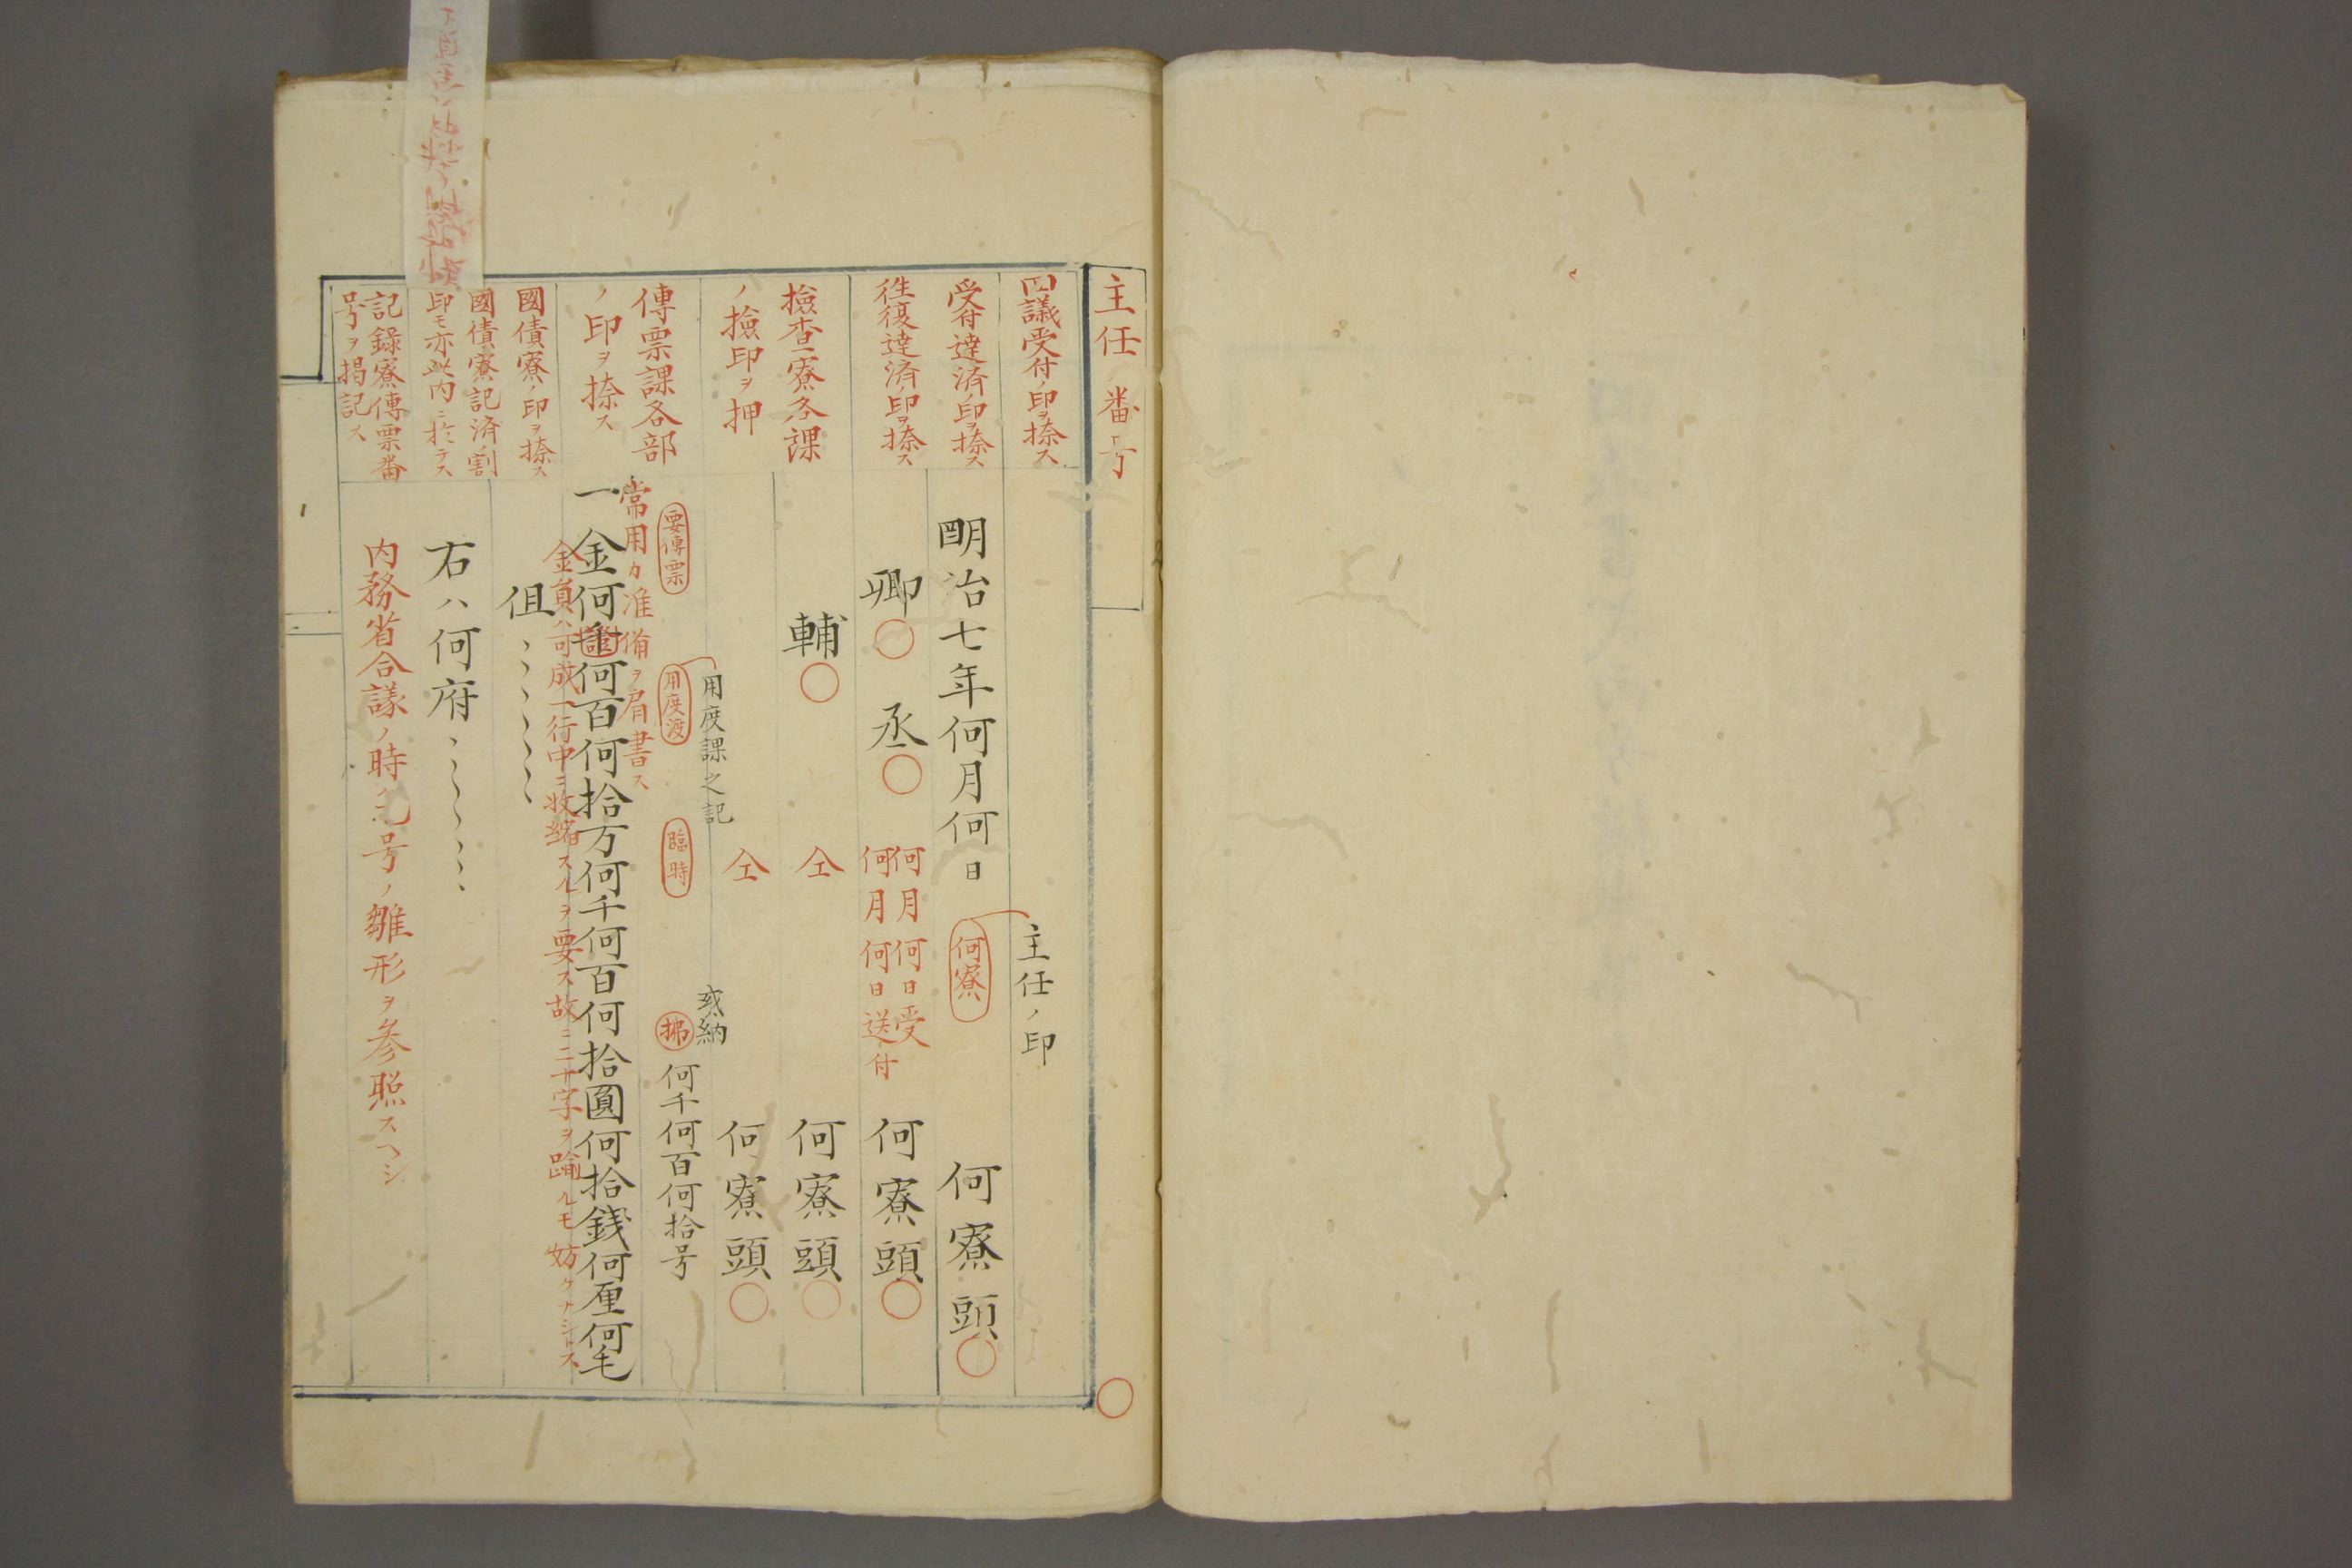 主任番号
四議受付ノ印ヲ捺ス
受付達済ノ印ヲ捺ス
往復達済ノ印ヲ捺ス
撿査寮各課
ノ撿印ヲ押
傳票課各部
ノ印ヲ捺ス
國債寮ノ印ヲ捺ス
國債寮記済ノ割
印モ亦此内ニ於テス
記錄寮傳票番
号ヲ掲記ス
主任ノ印
明治七年何月何日
何寮
何寮頭
卿
丞
何月何日受
何月何日送付
何寮頭
輔
仝
何寮頭
仝
何寮頭
用度課之記
或納
要傳票
用度渡
臨時
拂
何千何百何拾号
常用カ准備ヲ肩書ス
一金何千何百何拾万何千何百何拾圓何拾錢何厘何毛
金員ハ可成一行中ニ收縮スルヲ要ス故ニ二十字ヲ踰ルモ妨ケナシトス
但
右ハ何府
内務省合議ノ時ハ号ノ雛形ヲ参照スヘシ